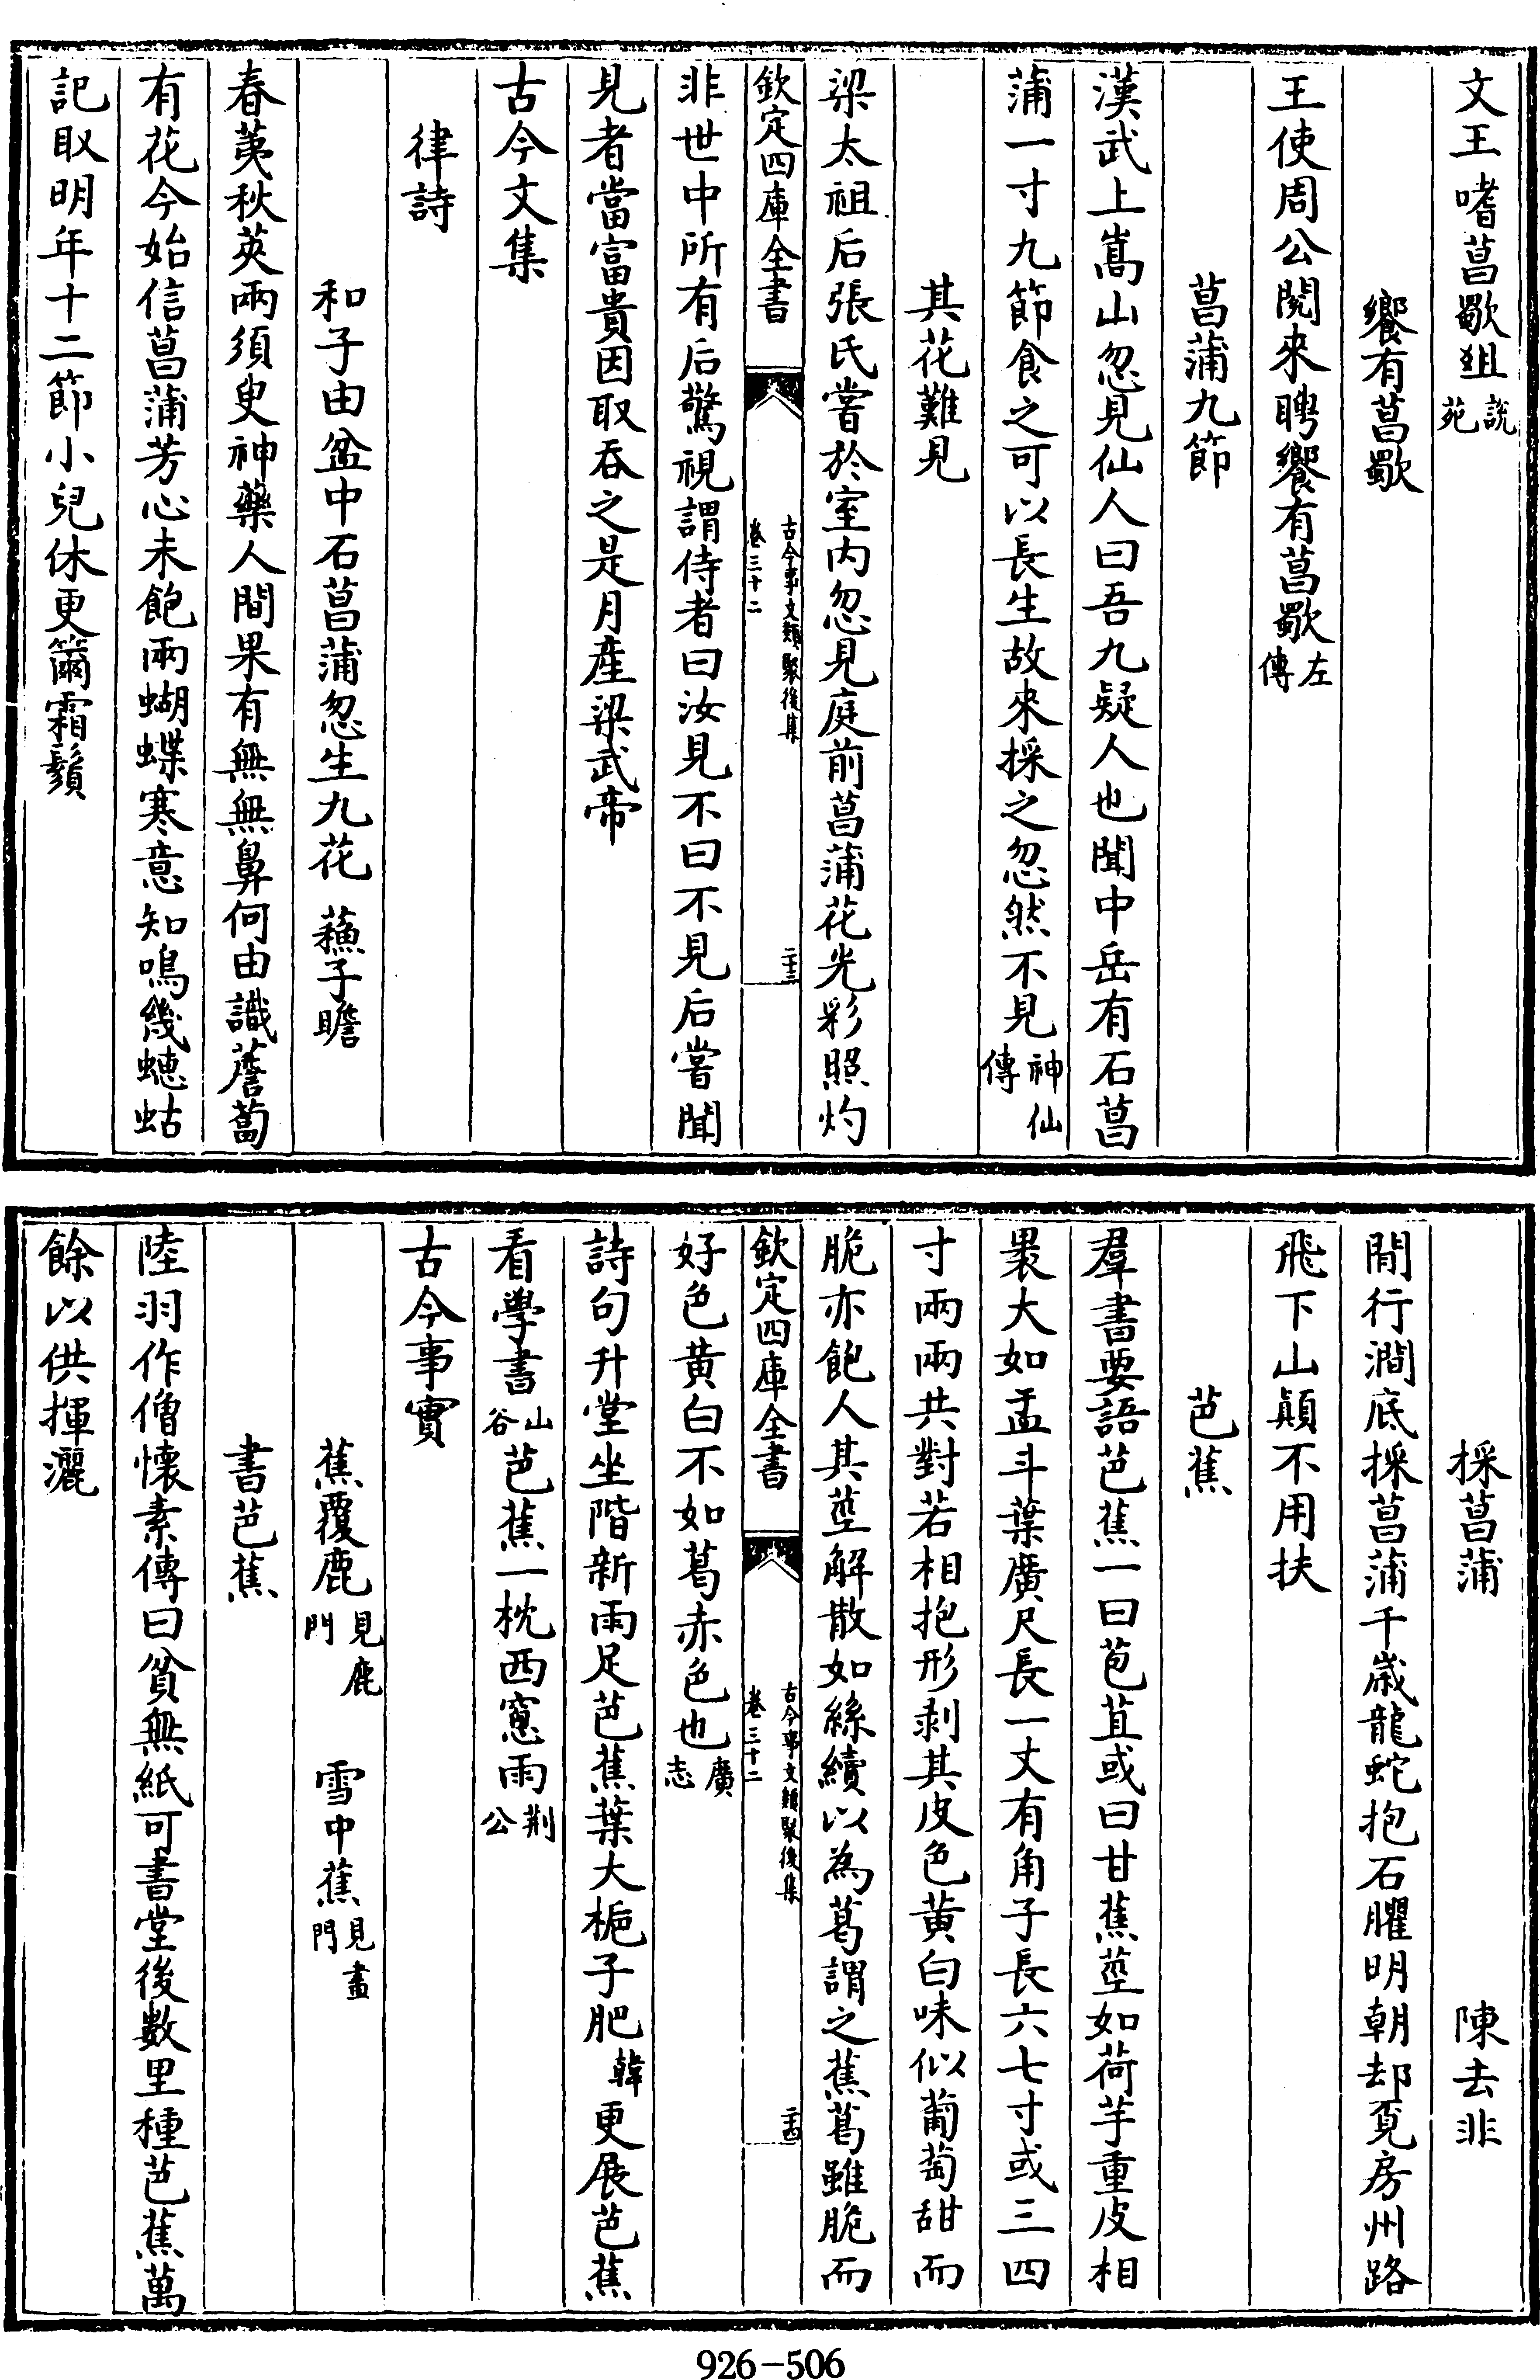 文王嗜菖歜俎說苑
饗有菖歜
王使周公閱來聘饗有菖歜左傳
菖蒲九節
漢武上嵩山忽見仙人曰吾九疑人也聞中岳有石菖
蒲一寸九節食之可以長生故來採之忽然不見神仙傳
其花難見
梁太祖后張氏嘗於室内忽見庭前菖蒲花光彩照灼
欽定四庫全書 古今事文類聚後集 卷三十二 二十三
非世中所有后驚視謂侍者曰汝見不曰不見后嘗聞
見者當富貴因取吞之是月產梁武帝
古今文集
律詩
和子由盆中石菖蒲忽生九花 蘓子瞻
春荑秋莢兩須臾神藥人間果有無無鼻何由識薝蔔
有花今始信菖蒲芳心未飽兩蝴蝶寒意知鳴幾蟪蛄
記取明年十二節小兒休更籋霜鬚
採菖蒲 陳去非
閒行澗底採菖蒲千嵗龍蛇抱石臞明朝却覔房州路
飛下山顛不用扶
芭蕉
羣書要語芭蕉一曰苞苴或曰甘蕉莖如荷芋重皮相
裹大如盂斗葉廣尺長一丈有角子長六七寸或三四
寸兩兩共對若相抱形剥其皮色黄白味似葡萄甜而
脆亦飽人其莖解散如絲績以為葛謂之蕉葛雖脆而
欽定四庫全書 古今事文類聚後集 卷三十二 二十四
好色黄白不如葛赤色也廣志
詩句升堂坐階新雨足芭蕉葉大梔子肥韓更展芭蕉
看學書山谷芭蕉一枕西窻雨荆公
古今事實
蕉覆鹿見鹿門 雪中蕉見畫門
書芭蕉
陸羽作僧懐素傳曰貧無紙可書堂後數里種芭蕉萬
餘以供揮灑
926-506